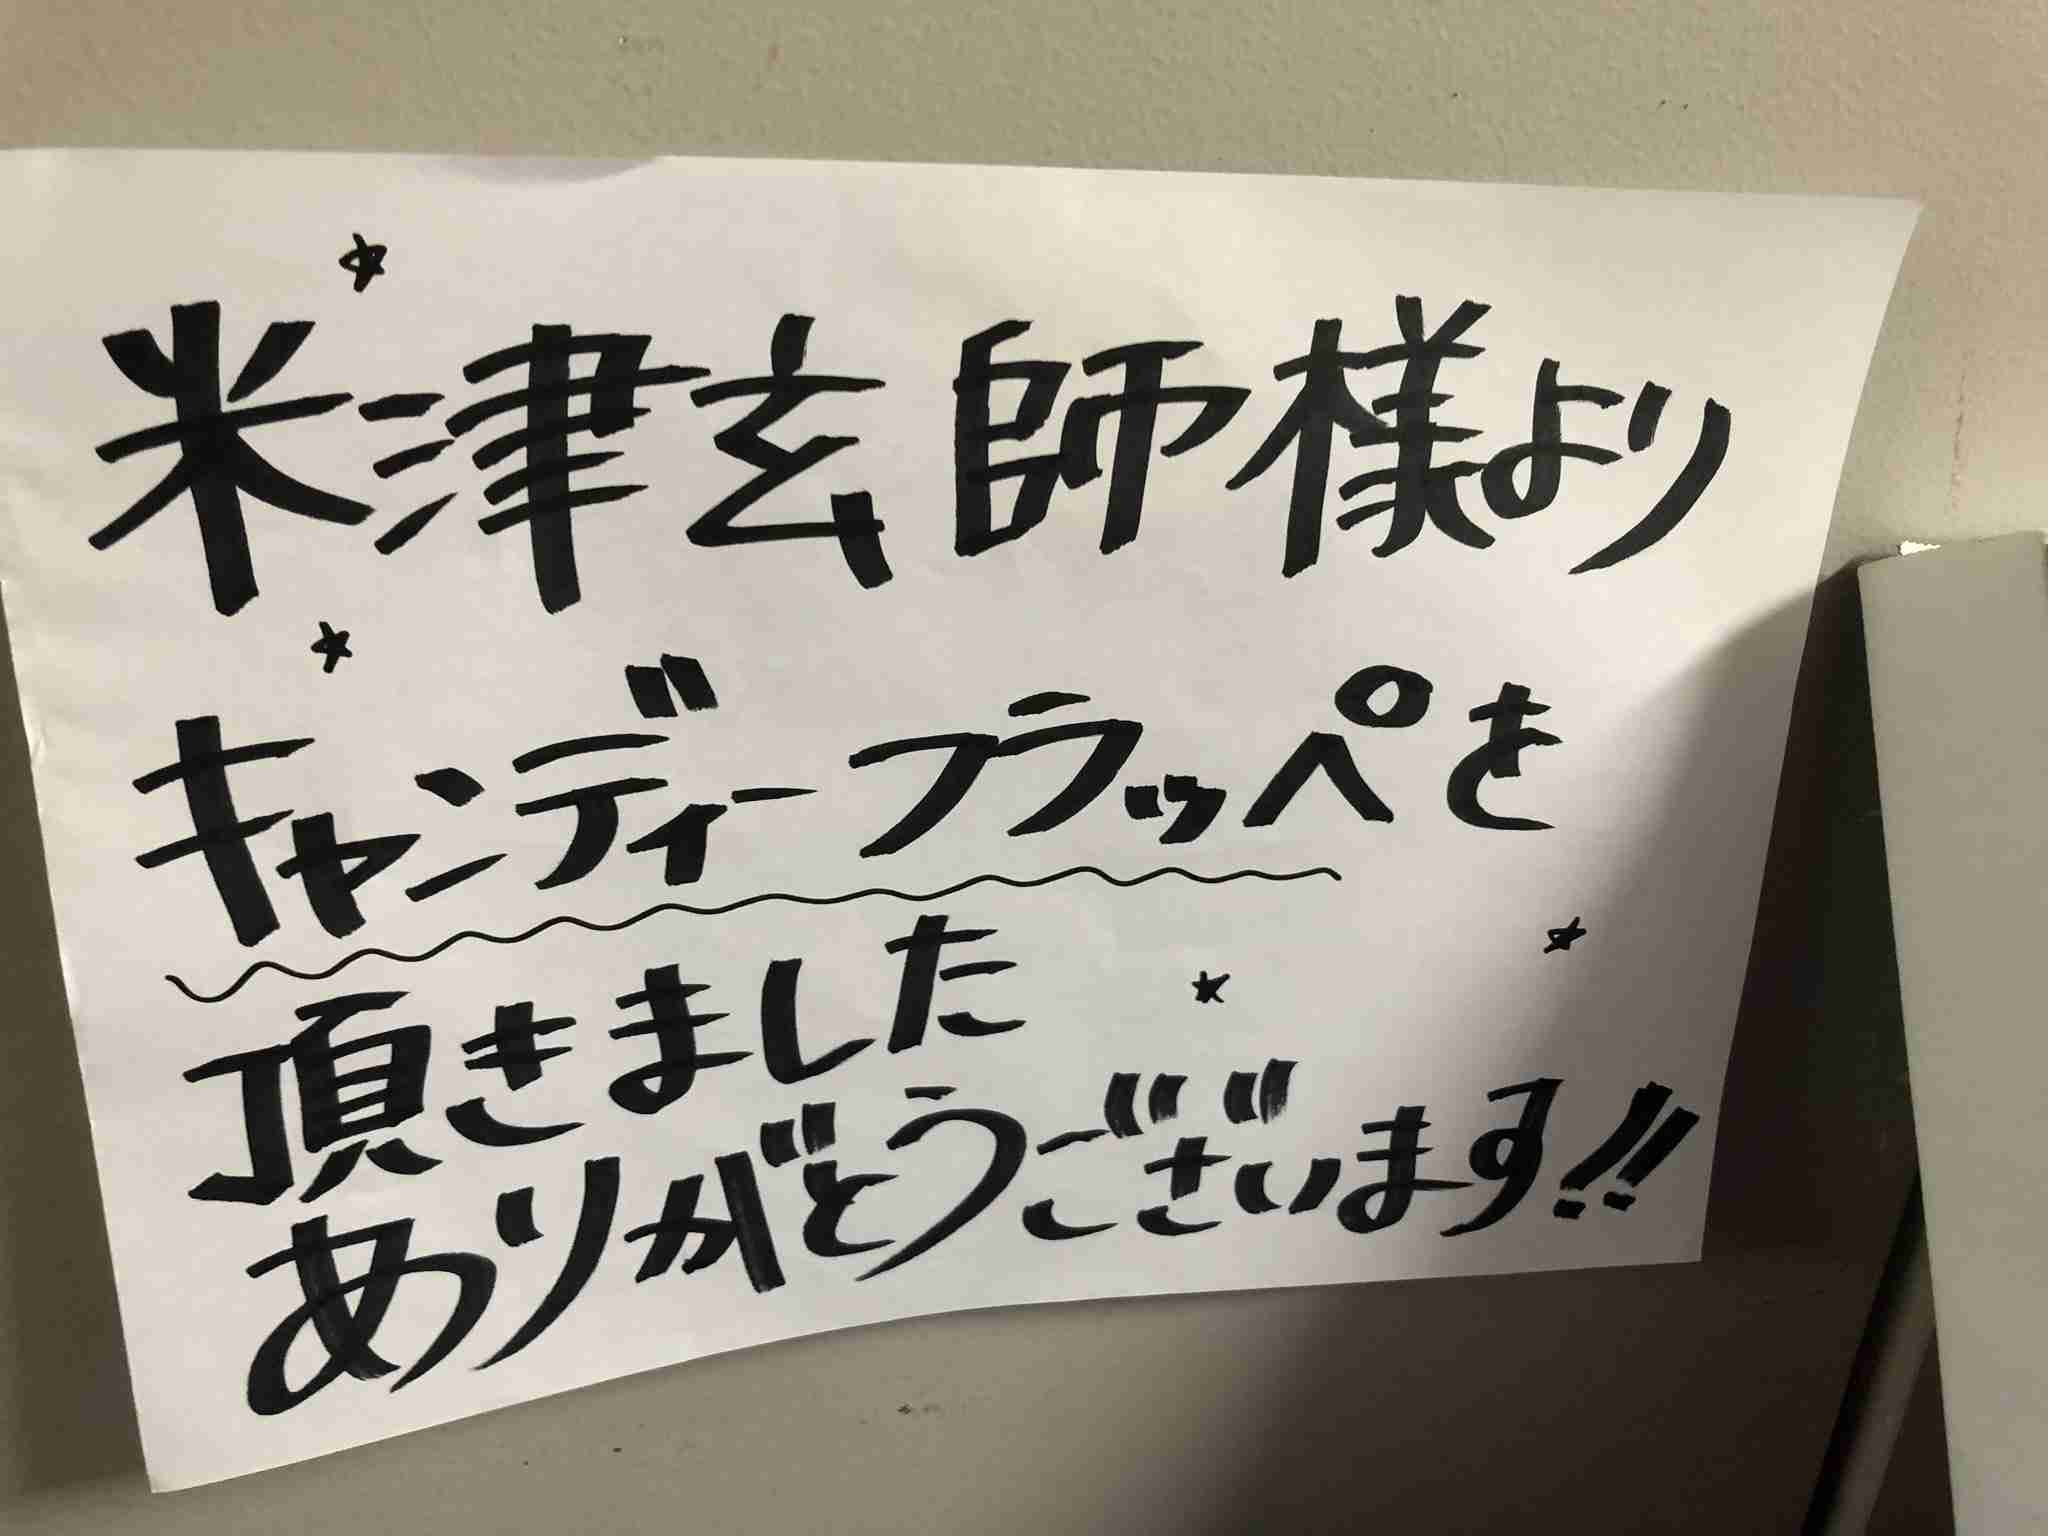 米津玄師様より
キャンディーフラッペを
頂きました
ありがとうございます!!